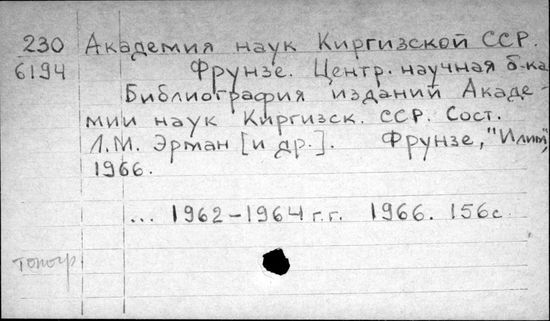 230 Академия наук Киргизской ССР.
6194 Фрунзе. Центр. научная б-ка
Библиография изданий Акаде-
мии наук Киргизск. ССР. Сост.
Л.М. Эрман [и др.]. Фрунзе, "Илим",
1966.
... 1962-1964 г.г. 1966. 156с.
топогр